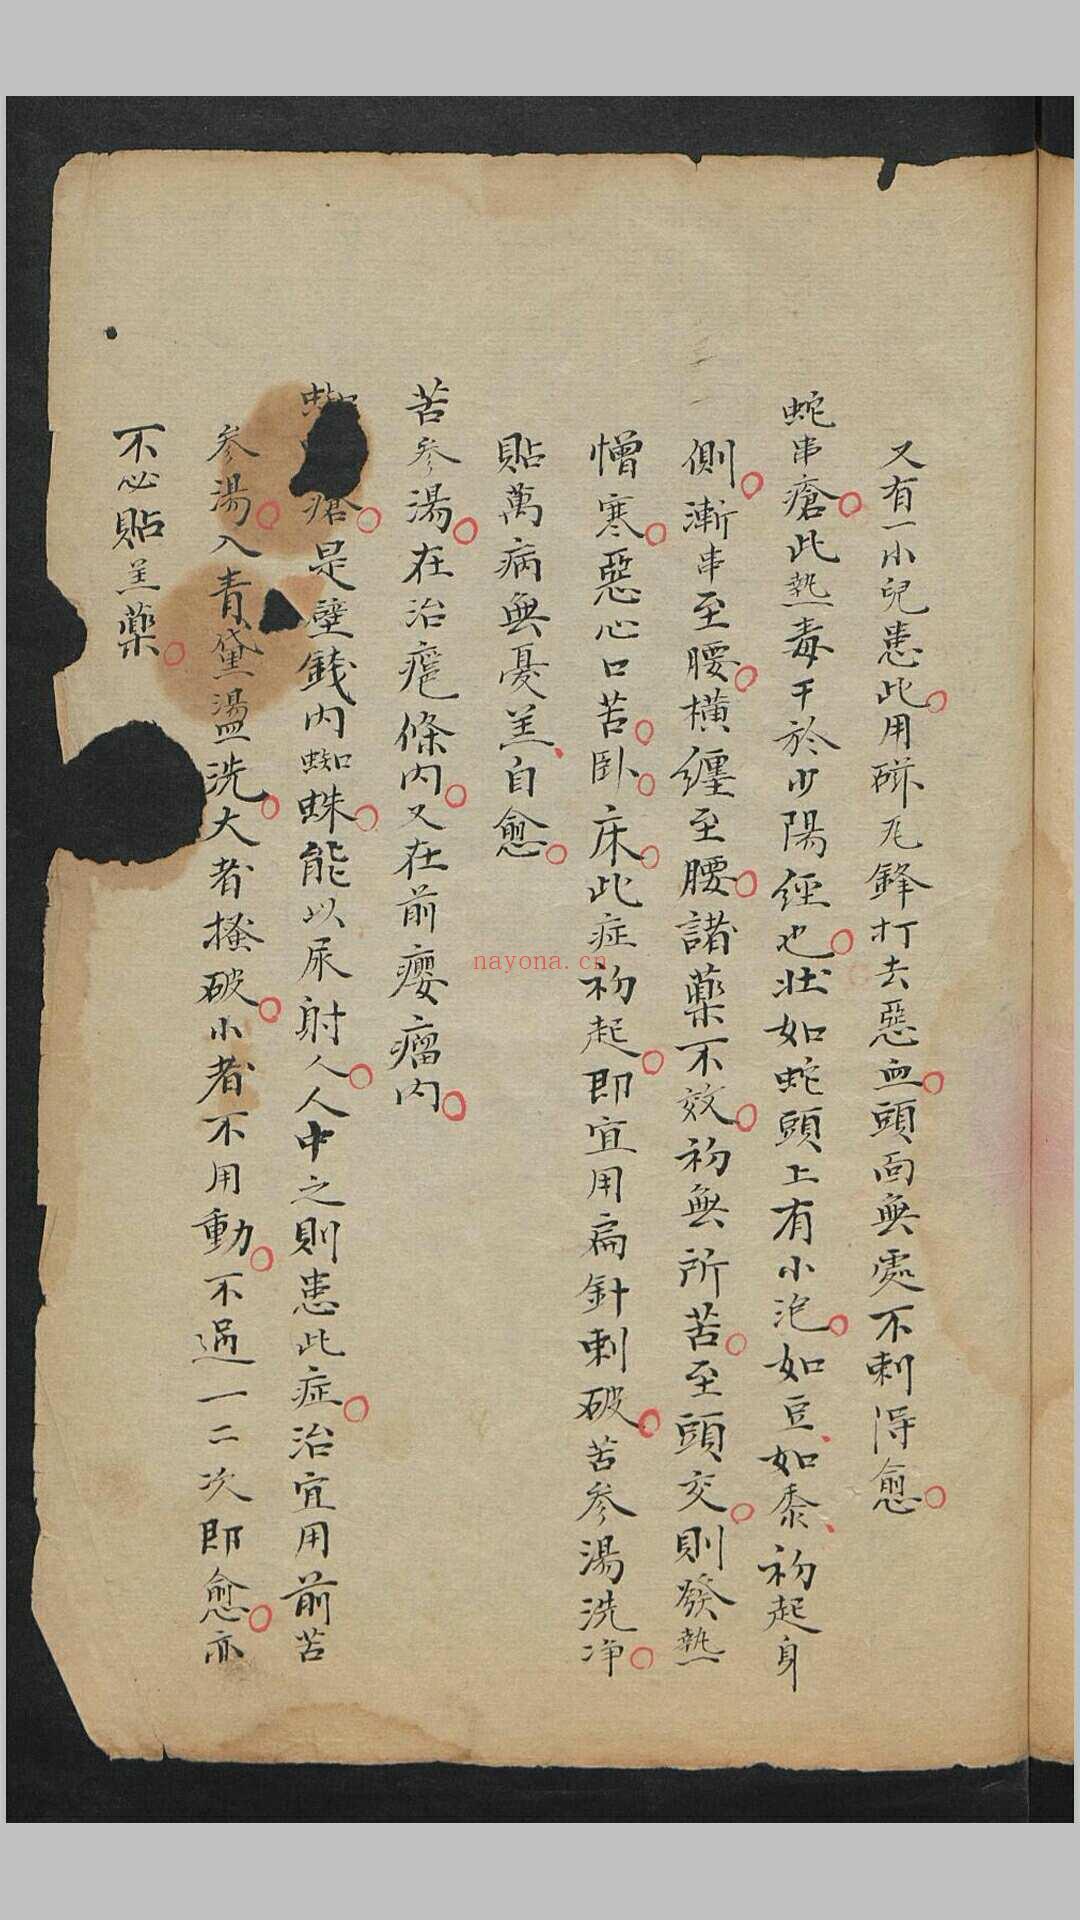 又有一小兒患此用磁瓦鋒打去惡血頭面無處不刺得愈
蛇串瘡此熱毒干於少陽經也壯如蛇頭上有小泡如豆如黍初起身
側漸串至腰橫纏至腰諸藥不效初無所苦至頭交則發熱
憎寒惡心口苦臥床此症初起即宜用扁針刺破苦參湯洗净
貼萬病無憂羔自愈
苦參湯在治癍條内又在前癭瘤内
瘡是壁錢内蜘蛛能以尿射人人中之則患此症治宜用前苦
參湯入青黛盪洗大者搔破小者不用動不過一二次即愈亦
不必貼羔藥
nayona.cn